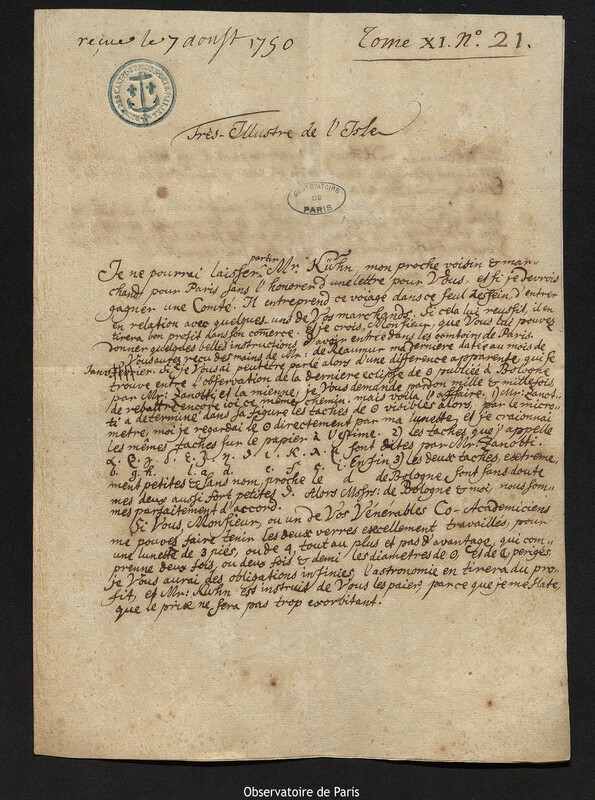 reçue le 7 aoust 1750
Tome XI. N.° 21.
OBSERVATOIRE DE PARIS
Très-Illustre de l'Isle
partir
Je ne pourrai laisser Mr. Kühn, mon proche voisin & mar-
chand pour Paris sans l'honorer d'une lettre pour Vous, et si je devrois
gagner une Comité. Il entreprend ce voiage dans ce seul dessein, d'entrer
en relation avec quelques uns de Vos marchands. Si cela reussit, il en
tirera bon profit dans son comerce. Et je crois, Monsieur, que Vous lui pouvés
donner quelques belles instructions d'avoir entrée dans les comtoirs de Paris.
Vous aurés reçu des mains de Mr: de Reaumur ma derniere datée au mois de
Janvier. Si je Vous ai peutétre parlé alors d'une difference apparente, qui se
trouve entre l'observation de la derniere eclipse de ☉ publiée à Bologne
par Mr: Zanotti et la mienne, je Vous demande pardon mille & mille fois,
de rebattre encore ici ce méme chemin. mais voila l'affaire. 1) Mr: Zanot-
ti a determiné dans sa figure les taches de ☉ visibles alors, par le micro-
metre, moi je regardai le ☉ directement par ma lunette, et je craionnai
les mémes taches sur le papier à l'estime. 2) les taches que j'appelle
sont dites par Mr: Zanotti
b. g. k. l. a. d. e. f. c. i. Enfin 3) les deux taches, extreme-
ment petites & sans nom, proche le d de Bologne sont sans doute
mes deux aussi fort petites Alors Msrs: de Bologne & moi, nous som-
mes parfaitement d'accord.
Si Vous, Monsieur, ou un de Vos Vénérables Co-Academiciens
me pouvés faire tenir les deux verres excellement travaillés, pour
une lunette de 3 piés, ou de 4, tout au plus et pas d'avantage, qui com-
prenne deux fois, ou deux fois & demi les diametres de ☉ et de ☾ perigés
je Vous aurai des obligations infinies, l'astronomie en tirera du pro-
fit, et Mr: Kühn est instruit de Vous les paier, parce que je me flate,
que le prix ne sera pas trop exorbitant.
Observatoire de Paris